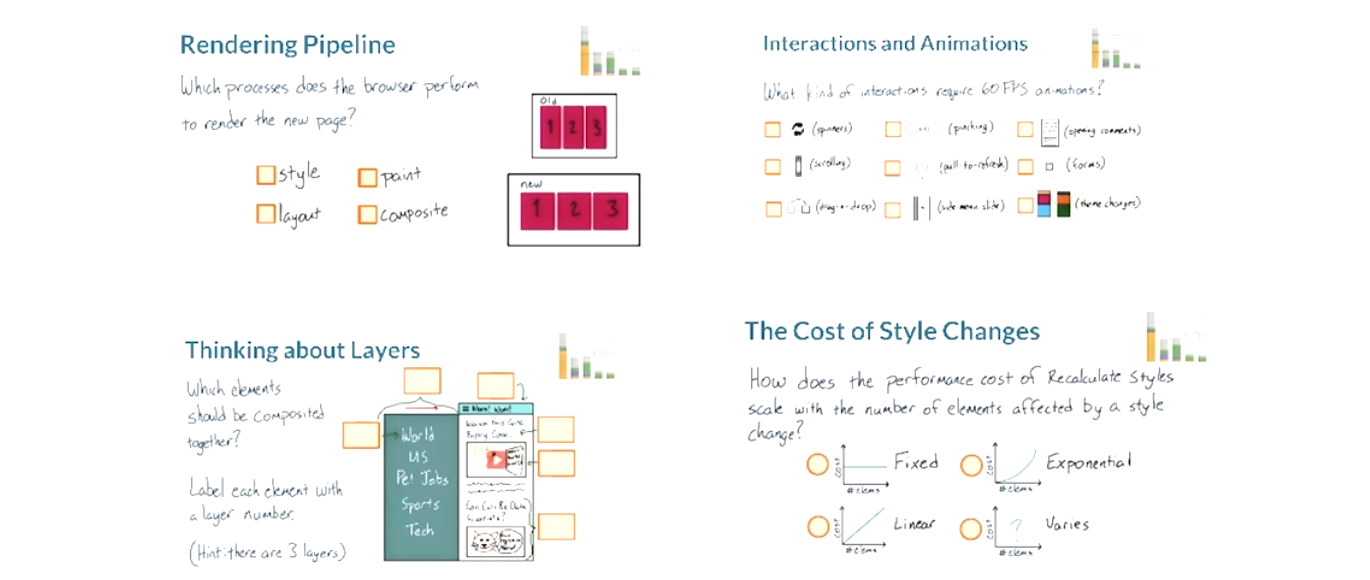 Rendering Pipeline
Which processes does the browser perform
to render the new page?
style
paint
layout
composite
old
1 2 3
new
1 2 3
Interactions and Animations
What kind of interactions require 60 FPS animations?
(spinners)
(pinching)
(opening comments)
(scrolling)
(pull-to-refresh)
(forms)
(drag-n-drop)
(side menu slide)
(theme changes)
Thinking about Layers
Which elements
should be composited
together?
Label each element with
a layer number.
(Hint: there are 3 layers)
World
US
Pet Jobs
Sports
Tech
The Cost of Style Changes
How does the performance cost of Recalculate Styles
scale with the number of elements affected by a style
change?
cost
# elems
Fixed
cost
# elems
Exponential
cost
# elems
Linear
cost
?
# elems
Varies